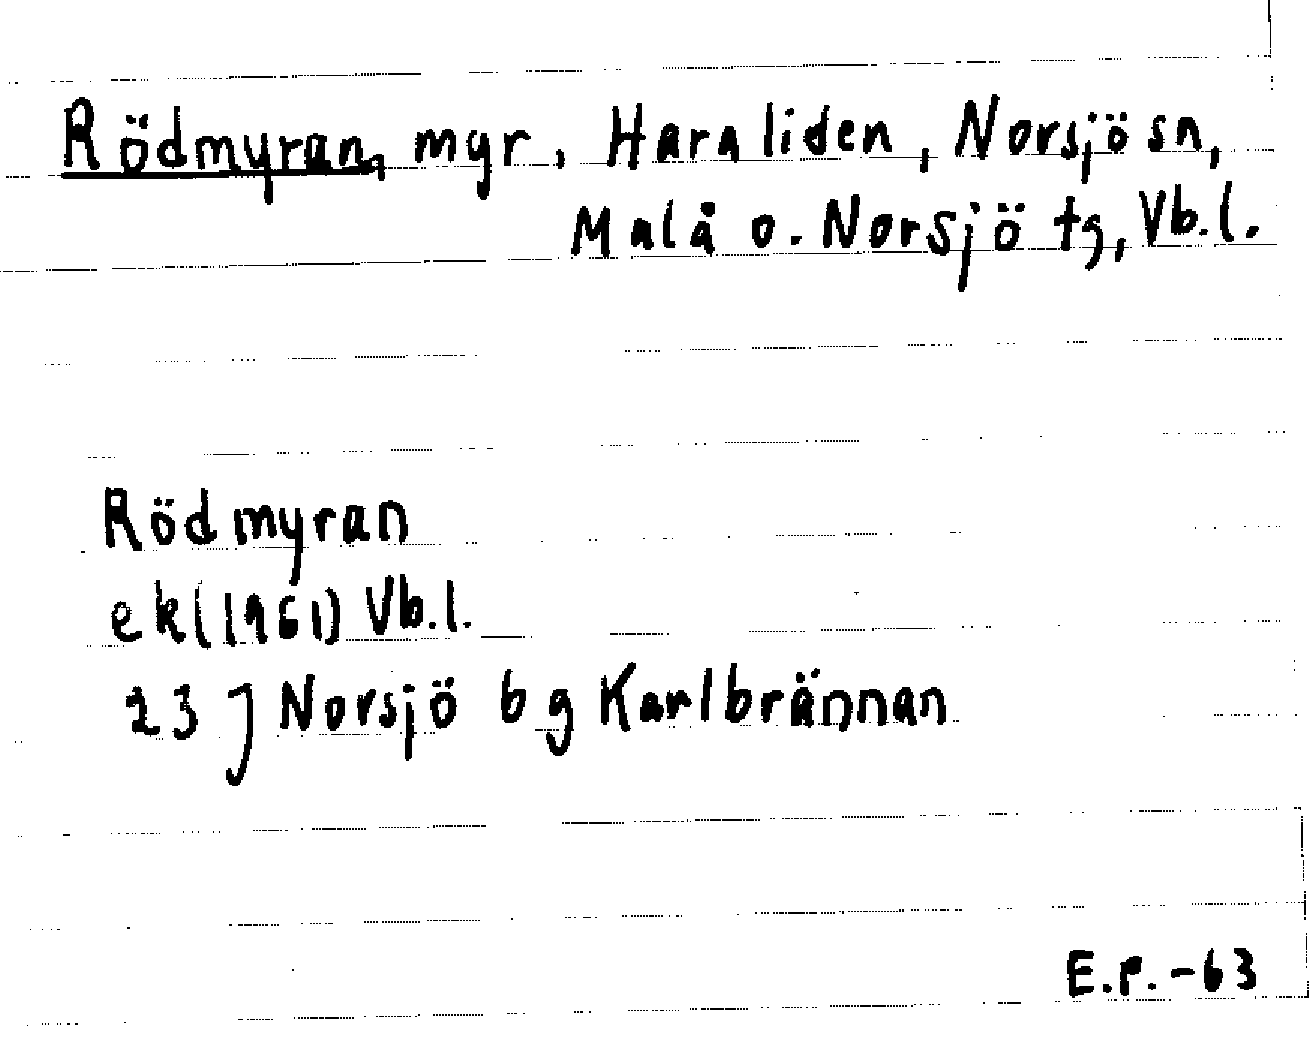 Rödmyran, myr, Haraliden, Norsjö sn,
Malå o. Norsjö tg, Vb.l.
Rödmyran
ek (1961) Vb.l.
23 J Norsjö bg Karlbrännan
E.P.-63